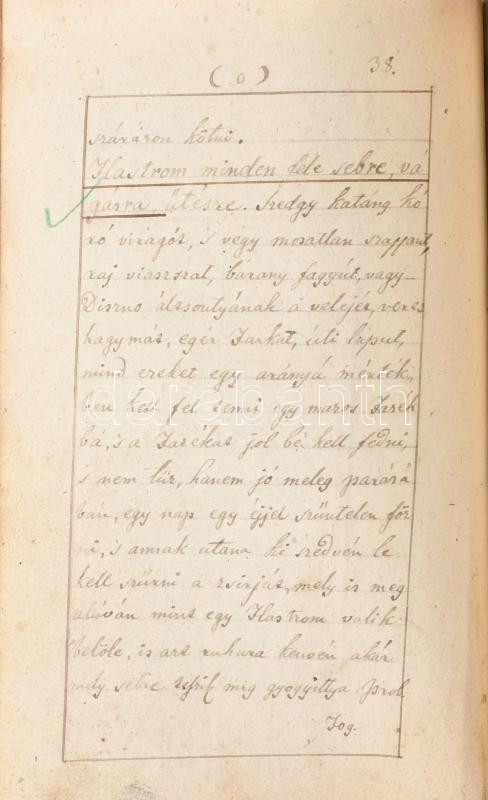 ( o ) 38.
száraron kötni.
Flastrom minden féle sebre, vá
gásra, ütésre. Szedgy katáng kó
ró virágót, 's végy mosatlan szappant,
raj viaszszat, bárany fagyút, vagy
Diszno álzsoutyának á velejét, veres
hagymát, egér Farkat, úti láput,
mind ezeket egy arányú mérték,
ben kell fel tenni egy mázos Fazék
ba, 's a Fazékat jól bé kell fedni,
's nem tűz, hanem jó meleg parárá
ban, egy nap egy éjjel szűntelen főz
ni, 's annak utana ki szedvén le
kell szűrni a zsirját, mely is meg
alúván mint egy Flastrom valik
belöle, is azt ruhura kenvén akár
mély sebre meg gyogyittya Prob
Fog.
darabanth